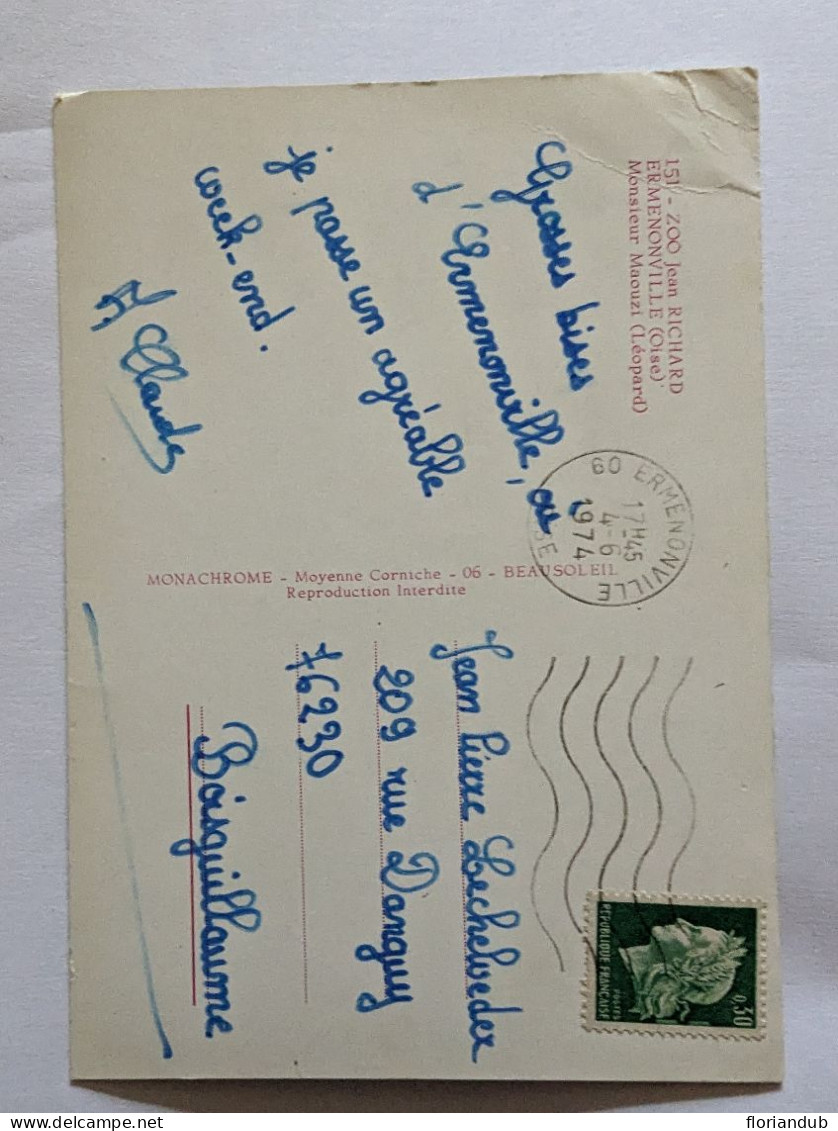 151 - ZOO Jean RICHARD
ERMENONVILLE (Oise)
Monsieur Maouzi (Léopard)
Grosses bises
d'Ermenonville, ou
je passe un agréable
week-end.
J. Claude
MONACHROME - Moyenne Corniche - 06 - BEAUSOLEIL
Reproduction Interdite
60 ERMENONVILLE
17H45
4-6
1974
Jean Pierre Lechelvedex
209 rue Danguy
76230
Boisguillaume
REPUBLIQUE FRANÇAISE
POSTES
0,30
delcampe.net
floriandub